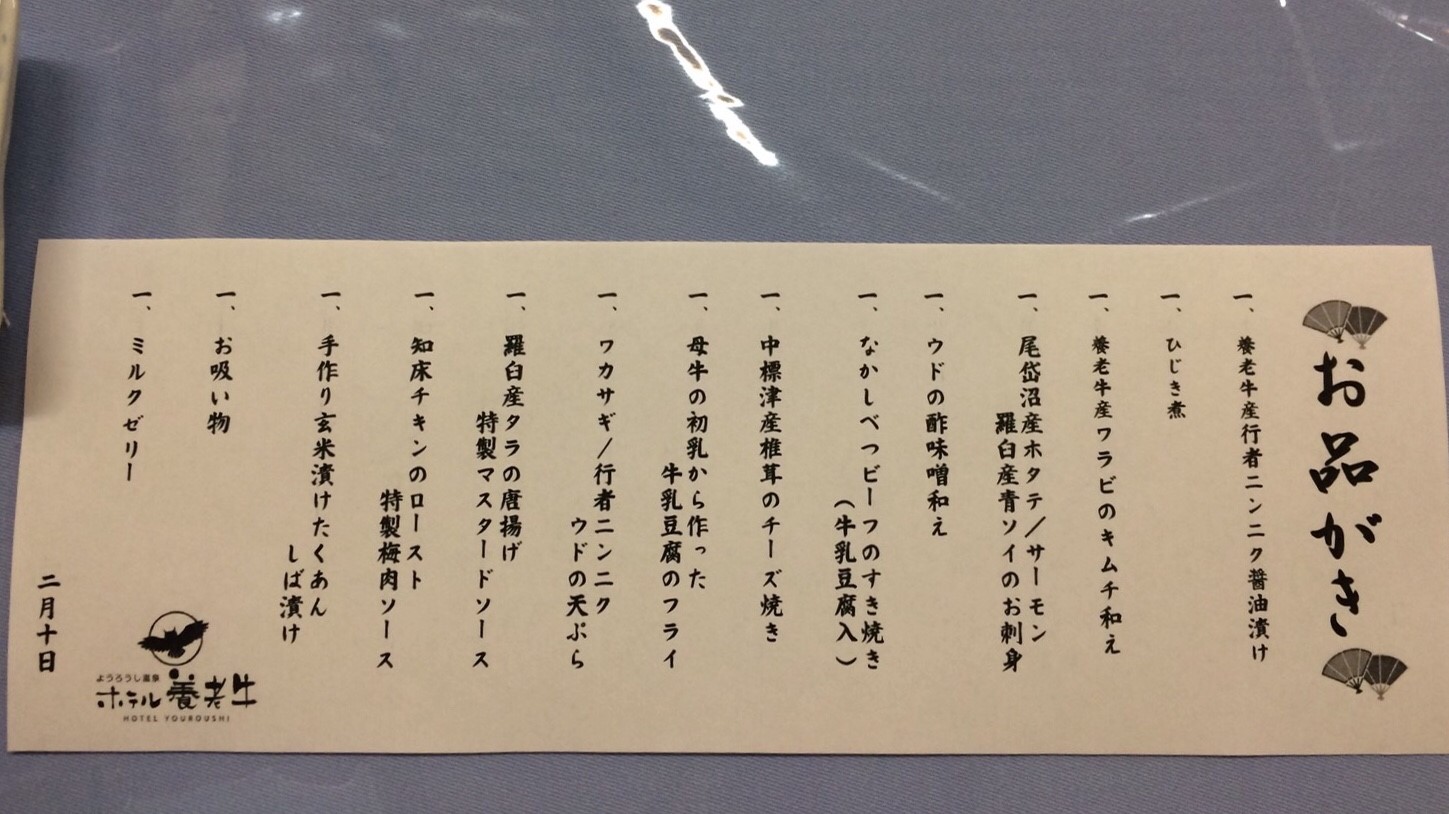 お品がき
一、養老牛産行者ニンニク醤油漬け
一、ひじき煮
一、養老牛産ワラビのキムチ和え
一、尾岱沼産ホタテ/サーモン
羅臼産青ソイのお刺身
一、ウドの酢味噌和え
一、なかしべつビーフのすき焼き
(牛乳豆腐入)
一、中標津産椎茸のチーズ焼き
一、母牛の初乳から作った
牛乳豆腐のフライ
一、ワカサギ/行者ニンニク
ウドの天ぷら
一、羅臼産タラの唐揚げ
特製マスタードソース
一、知床チキンのロースト
特製梅肉ソース
一、手作り玄米漬けたくあん
しば漬け
一、お吸い物
一、ミルクゼリー
二月十日
ようろうし温泉
ホテル養老牛
HOTEL YOUROUSHI